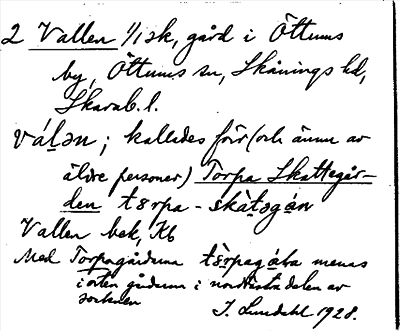 2 Vallen 1/1 sk, gård i Öttums
by, Öttums sn, Skånings hd,
Skarab. l.
válən; kallades förr (och ännu av
äldre personer) Torpa Skattegår-
den tɵrpa-skàtəgán
Vallen bek, Kb
Med Torpagårdarna tɵ̀rpagáɳa menas
i orten gårdarna i nordöstra delen av
socknen
J. Lundahl 1928.